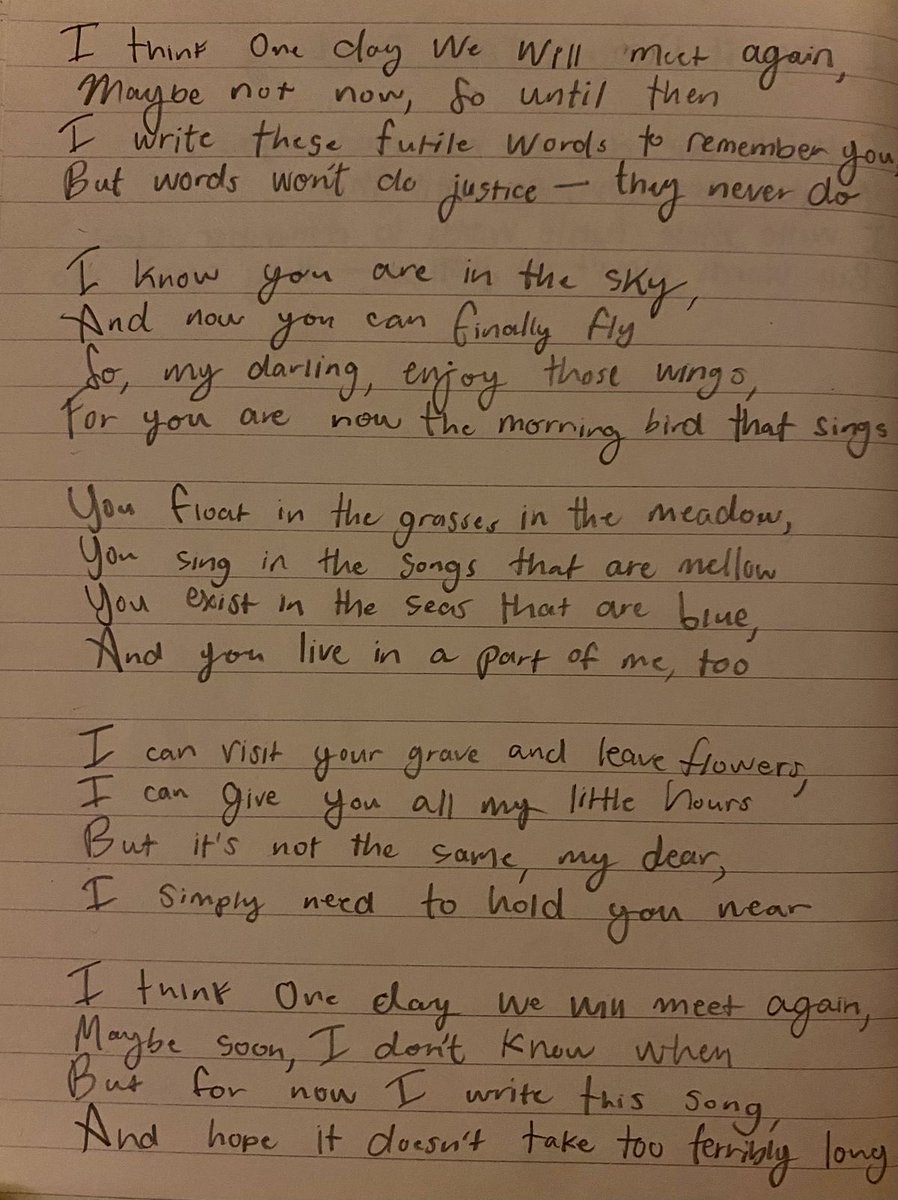 I think one day we will meet again,
Maybe not now, so until then
I write these futile words to remember you,
But words won't do justice — they never do
I know you are in the sky,
And now you can finally fly
So, my darling, enjoy those wings,
For you are now the morning bird that sings
You float in the grasses in the meadow,
You sing in the songs that are mellow
You exist in the seas that are blue,
And you live in a part of me, too
I can visit your grave and leave flowers,
I can give you all my little hours
But it's not the same, my dear,
I simply need to hold you near
I think one day we will meet again,
Maybe soon, I don't know when
But for now I write this song,
And hope it doesn't take too terribly long